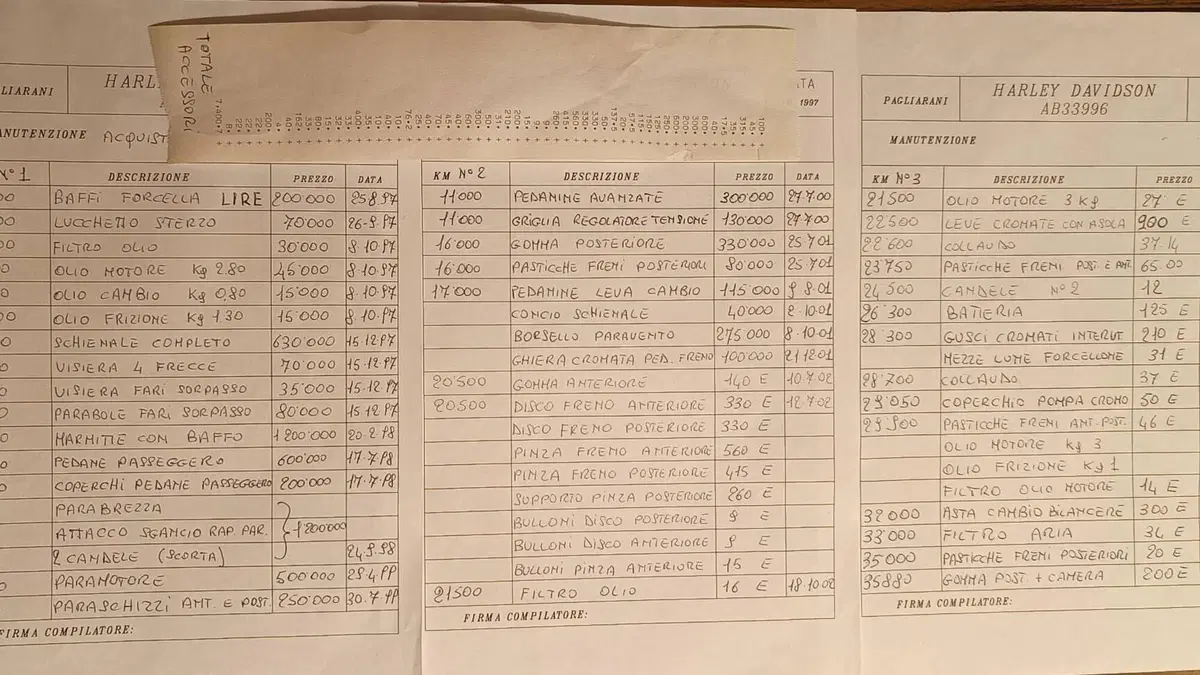 TOTALE
ACCESSORI
LIARANI
HARL
MANUTENZIONE ACQUIST
N°1 DESCRIZIONE PREZZO DATA
BAFFI FORCELLA LIRE 200'000 25.8.97
LUCCHETTO STERZO 70'000 26-9.97
FILTRO OLIO 30'000 8.10.97
OLIO MOTORE Kg 2.80 45'000 8.10.97
OLIO CAMBIO Kg 0,80 15'000 8.10.97
OLIO FRIZIONE Kg 1.30 15'000 8.10.97
SCHIENALE COMPLETO 630'000 15.12.97
VISIERA 4 FRECCE 70'000 15.12.97
VISIERA FARI SORPASSO 35'000 15.12.97
PARABOLE FARI SORPASSO 80'000 15.12.97
MARMITTE CON BAFFO 1'200'000 20.2.98
PEDANE PASSEGGERO 600'000 17.7.98
COPERCHI PEDANE PASSEGGERO 200'000 17.7.98
PARABREZZA
ATTACCO SGANCIO RAP. PAR. 1'200'000
2 CANDELE (SCORTA) 24.9.98
PARAMOTORE 500'000 29.4.99
PARASCHIZZI ANT. E POST. 250'000 30.7.99
FIRMA COMPILATORE:
ATA
1997
KM N°2 DESCRIZIONE PREZZO DATA
11'000 PEDAMINE AVANZATE 300'000 27.7.00
11'000 GRIGLIA REGOLATORE TENSIONE 130'000 27.7.00
16'000 GOMMA POSTERIORE 330'000 25.7.01
16'000 PASTICCHE FRENI POSTERIORI 80'000 25.7.01
17'000 PEDAMINE LEVA CAMBIO 115'000 9.8.01
CONCIO SCHIENALE 40'000 2.10.01
BORSELLO PARAVENTO 275'000 8.10.01
GHIERA CROMATA PED. FRENO 100'000 21.12.01
20'500 GOMMA ANTERIORE 140 E 10.7.02
20'500 DISCO FRENO ANTERIORE 330 E 12.7.02
DISCO FRENO POSTERIORE 330 E
PINZA FRENO ANTERIORE 560 E
PINZA FRENO POSTERIORE 415 E
SUPPORTO PINZA POSTERIORE 260 E
BULLONI DISCO POSTERIORE 9 E
BULLONI DISCO ANTERIORE 9 E
BULLONI PINZA ANTERIORE 15 E
21'500 FILTRO OLIO 16 E 18.10.02
FIRMA COMPILATORE:
PAGLIARANI
HARLEY DAVIDSON
AB33996
MANUTENZIONE
KM N°3 DESCRIZIONE PREZZO
21'500 OLIO MOTORE 3 Kg 27 E
22'500 LEVE CROMATE CON ASOLA E
22'600 COLLAUDO 37.14
23'750 PASTICCHE FRENI POST. E ANT. 65.00
24'500 CANDELE N°2 12
26'300 BATTERIA 125 E
28'300 GUSCI CROMATI INTERUT 210 E
MEZZE LUNE FORCELLONE 31 E
28'700 COLLAUDO 37 E
29'050 COPERCHIO POMPA CROMO 50 E
29'900 PASTICCHE FRENI ANT. POST. 46 E
OLIO MOTORE Kg 3
OLIO FRIZIONE Kg 1
FILTRO OLIO MOTORE 14 E
32'000 ASTA CAMBIO BILANCERE 300 E
33'000 FILTRO ARIA 34 E
35'000 PASTICCHE FRENI POSTERIORI 20 E
35880 GOMMA POST. + CAMERA 200 E
FIRMA COMPILATORE: